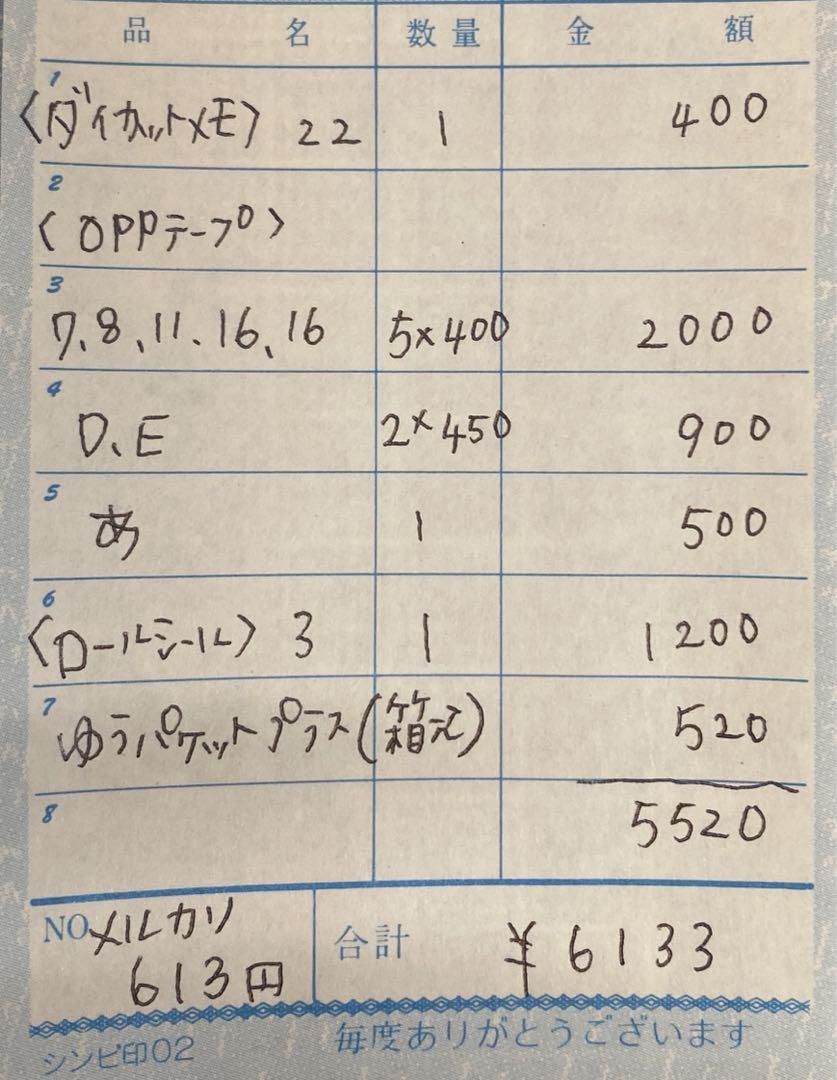 品 名 数量 金 額
1 〈ダイカットメモ〉 22 1 400
2 〈OPPテープ〉
3 7、8、11、16、16 5×400 2000
4 D、E 2×450 900
5 あ 1 500
6 〈ロールシール〉 3 1 1200
7 ゆうパケットプラス(箱元) 520
8 5520
NO. メルカリ
613円
合計 ¥6133
毎度ありがとうございます
シンピ印02